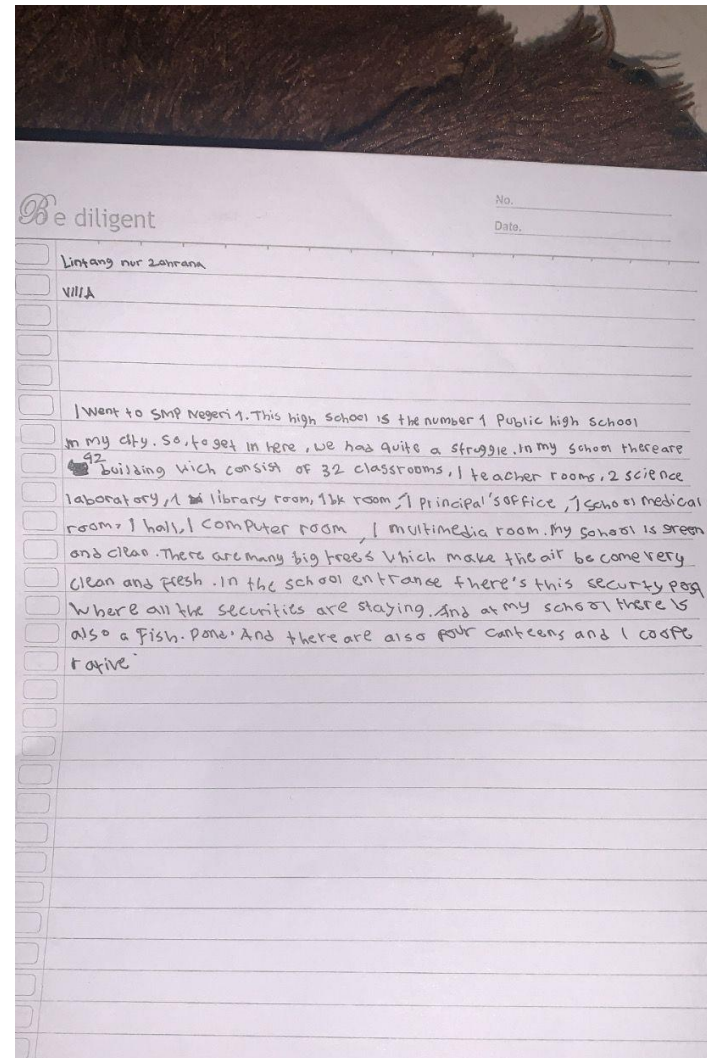 Be diligent
No.
Date.
Lintang nur zahrana
VIII A
I went to SMP Negeri 1. This high school is the number 1 Public high school
in my city. So, to get in here, we had quite a struggle. In my school there are
42
building wich consist of 32 classrooms, 1 teacher rooms, 2 science
laboratory, 1 library room, 1 bk room, 1 Principal's office, 1 school medical
room, 1 hall, 1 computer room, 1 multimedia room. My school is green
and clean. There are many big trees which make the air become very
clean and fresh. In the school entranse there's this securty post
Where all the securities are staying. And at my school there is
also a Fish. Pond. And there are also four canteens and 1 coope
rative.